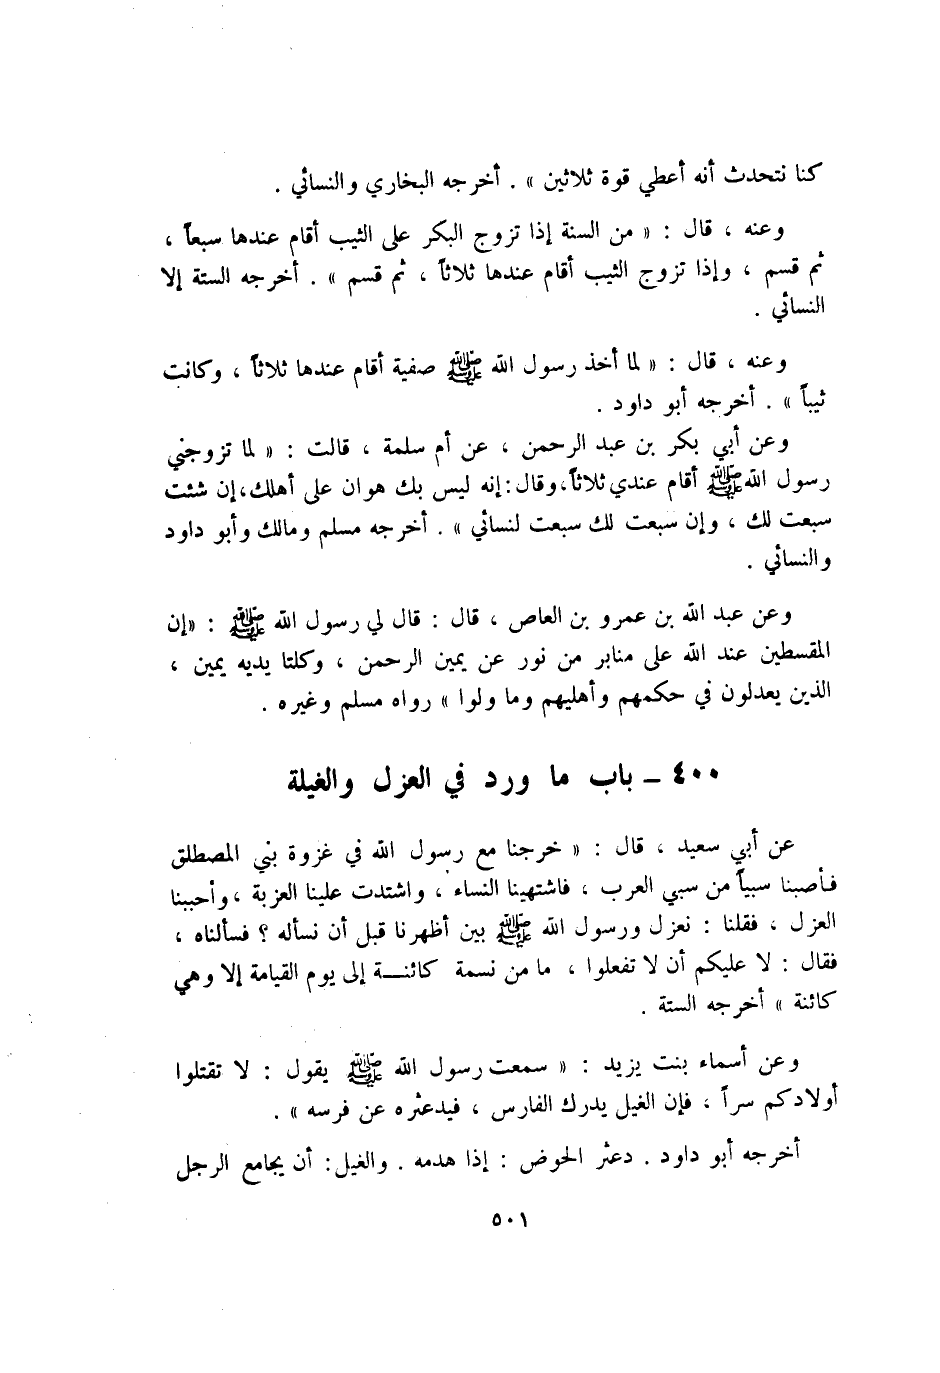 كنا نتحدث أنه أعطي قوة ثلاثين » . أخرجه البخاري والنسائي .
وعنه ، قال : « من السنة إذا تزوج البكر على الثيب أقام عندها سبعاً ،
ثم قسم ، وإذا تزوج الثيب أقام عندها ثلاثاً ، ثم قسم » . أخرجه الستة إلا
النسائي .
وعنه ، قال : « لما أخذ رسول الله ﷺ صفية أقام عندها ثلاثاً ، وكانت
ثيباً » . أخرجه أبو داود .
وعن أبي بكر بن عبد الرحمن ، عن أم سلمة ، قالت : « لما تزوجني
رسول الله ﷺ أقام عندي ثلاثاً، وقال : إنه ليس بك هوان على أهلك، إن شئت
سبعت لك ، وإن سبعت لك سبعت لنسائي » . أخرجه مسلم ومالك وأبو داود
والنسائي .
وعن عبد الله بن عمرو بن العاص ، قال : قال لي رسول الله ﷺ : «إن
المقسطين عند الله على منابر من نور عن يمين الرحمن ، وكلتا يديه يمين ،
الذين يعدلون في حكمهم وأهليهم وما ولوا » رواه مسلم وغيره .
٤٠٠ ـ باب ما ورد في العزل والغيلة
عن أبي سعيد ، قال : « خرجنا مع رسول الله في غزوة بني المصطلق
فأصبنا سبياً من سبي العرب ، فاشتهينا النساء ، واشتدت علينا العزبة ، وأحببنا
العزل ، فقلنا : نعزل ورسول الله ﷺ بين أظهرنا قبل أن نسأله ؟ فسألناه ،
فقال : لا عليكم أن لا تفعلوا ، ما من نسمة كائنـــة إلى يوم القيامة إلا وهي
كائنة » أخرجه الستة .
وعن أسماء بنت يزيد : « سمعت رسول الله ﷺ يقول : لا تقتلوا
أولادكم سراً ، فإن الغيل يدرك الفارس ، فيدعثره عن فرسه » .
أخرجه أبو داود . دعثر الحوض : إذا هدمه . والغيل : أن يجامع الرجل
٥٠١